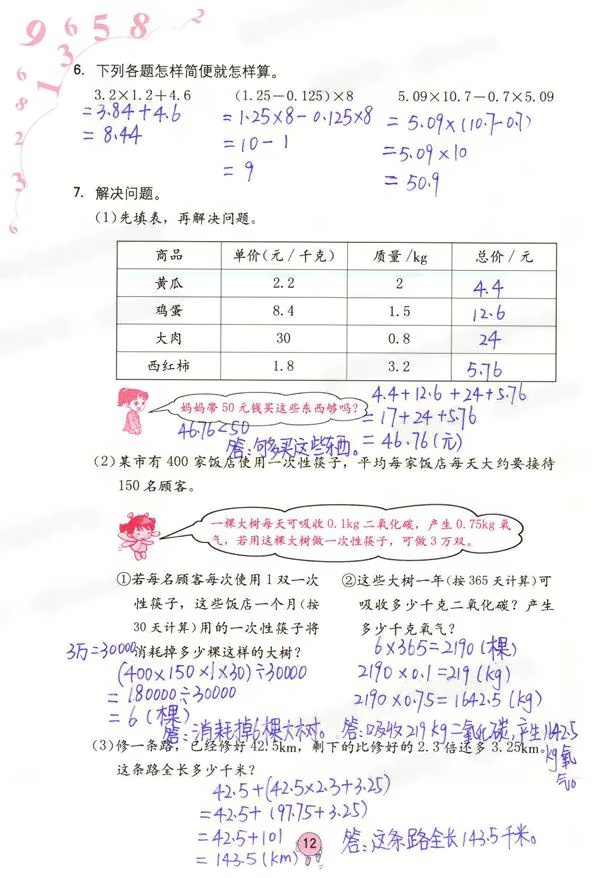 9 6 5 8 2
6 1 3
8
2
3
6
6. 下列各题怎样简便就怎样算。
3.2×1.2+4.6 (1.25-0.125)×8 5.09×10.7-0.7×5.09
=3.84+4.6 =1.25×8-0.125×8 =5.09×(10.7-0.7)
=8.44 =10-1 =5.09×10
=9 =50.9
7. 解决问题。
(1)先填表，再解决问题。
商品 单价(元/千克) 质量/kg 总价/元
黄瓜 2.2 2 4.4
鸡蛋 8.4 1.5 12.6
大肉 30 0.8 24
西红柿 1.8 3.2 5.76
4.4+12.6+24+5.76
妈妈带50元钱买这些东西够吗？ =17+24+5.76
46.76<50 答:够买这些东西。 =46.76(元)
(2)某市有400家饭店使用一次性筷子，平均每家饭店每天大约要接待
150名顾客。
一棵大树每天可吸收0.1kg二氧化碳，产生0.75kg氧
气，若用这棵大树做一次性筷子，可做3万双。
①若每名顾客每次使用1双一次
性筷子，这些饭店一个月(按
30天计算)用的一次性筷子将
消耗掉多少棵这样的大树？
3万=30000
(400×150×1×30)÷30000
=180000÷30000
=6(棵)
答:消耗掉6棵大树。
②这些大树一年(按365天计算)可
吸收多少千克二氧化碳？产生
多少千克氧气？
6×365=2190(棵)
2190×0.1=219(kg)
2190×0.75=1642.5(kg)
答:吸收219kg二氧化碳,产生1642.5
kg氧
气。
(3)修一条路，已经修好42.5km，剩下的比修好的2.3倍还多3.25km。
这条路全长多少千米？
42.5+(42.5×2.3+3.25)
=42.5+(97.75+3.25)
=42.5+101
=143.5(km)
答:这条路全长143.5千米。
12